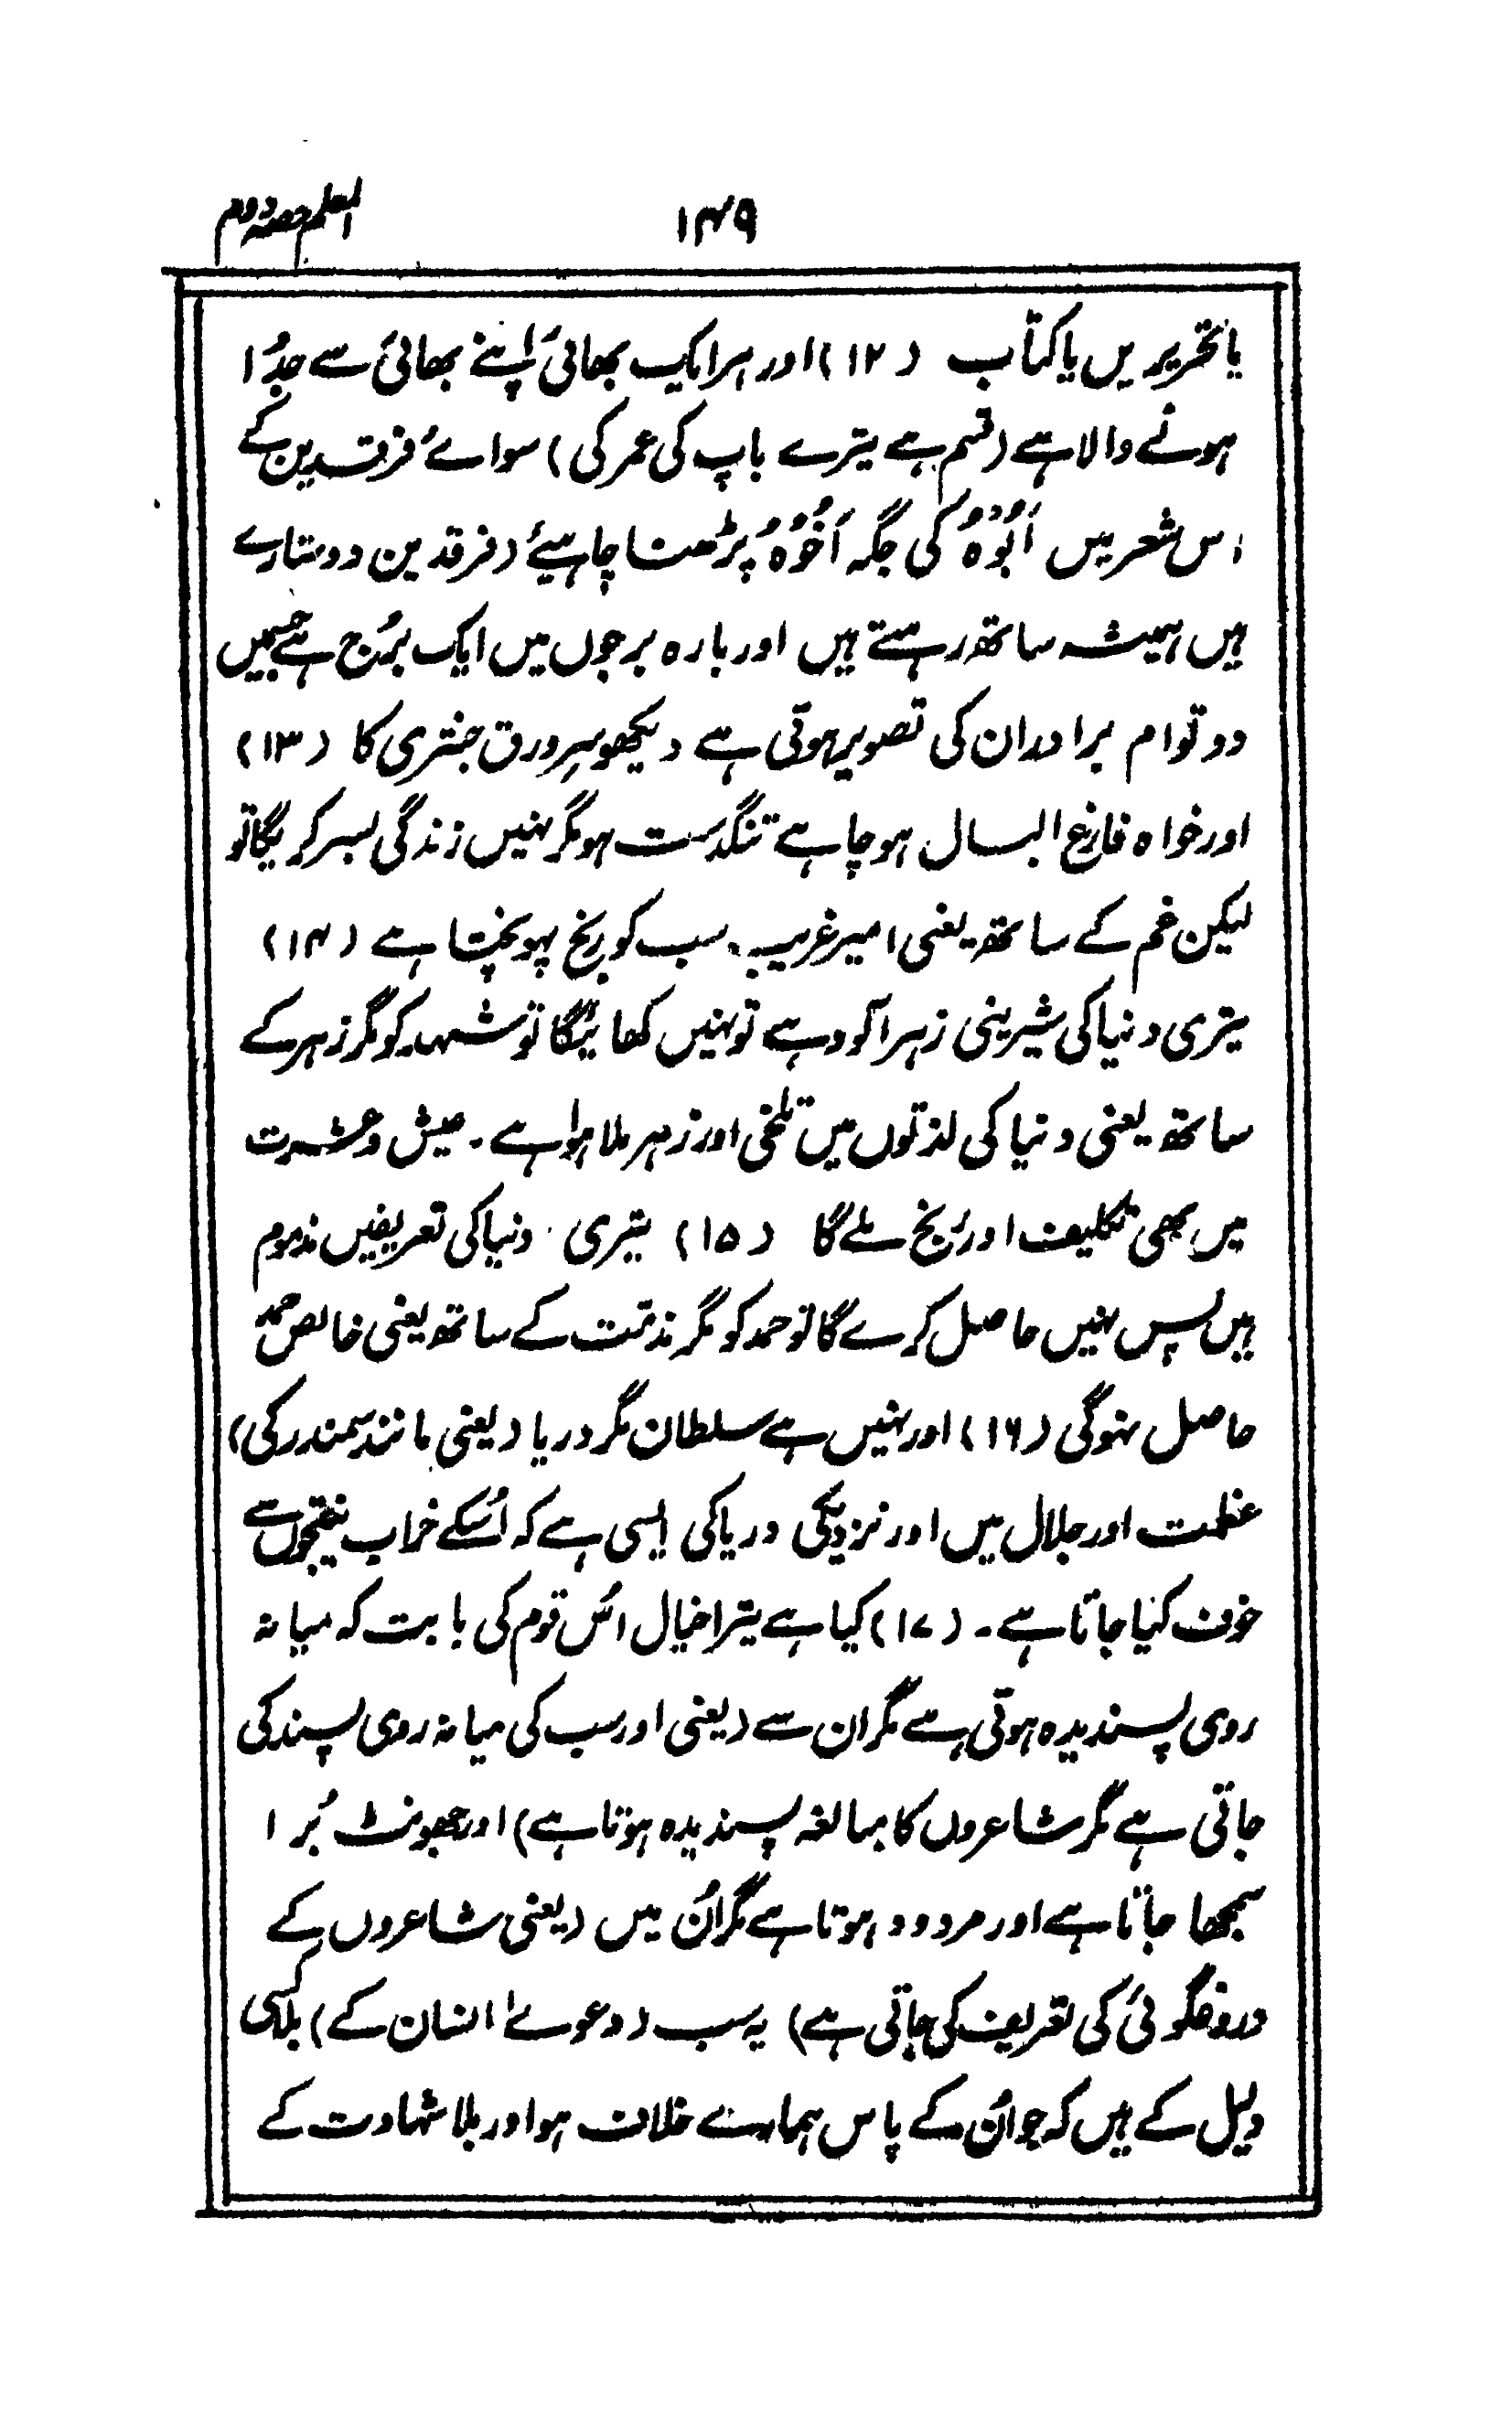 المعلم حصہ دوم
۱۴۹
یا تحریریں یا کتاب (۱۲) اور ہر ایک بھائی اپنے بھائی سے جدُا
ہونے والا ہے (قسم ہے تیرے باپ کی عمر کی) سوائے فرقدین کے
اس شعر میں اَبُوْہُ کی جگہ اَخُوْہُ پڑھنا چاہیئے (فرقدین دو ستارے
ہیں ہمیشہ ساتھ رہتے ہیں اور بارہ برجوں میں ایک برُج ہے جسمیں
دو توام برادران کی تصویر ہوتی ہے دیکھو سرِورق جنتری کا (۱۳)
اور خواہ فارغ البال ہو چاہے تنگدست ہو مگر نہیں زندگی بسر کریگا تو
لیکن غم کے ساتھ یعنی امیر غریب سب کو رنج پہونچتا ہے (۱۴)
تیری دنیا کی شیرینی زہر آلود ہے تو نہیں کھائیگا تو شہد کو مگر زہر کے
ساتھ یعنی دنیا کی لذتوں میں تلخی اور زہر ملا ہوا ہے۔ عیش و عشرت
میں بھی تکلیف اور رنج ملے گا (۱۵) تیری دنیا کی تعریفیں مذموم
ہیں پس نہیں حاصل کرے گا تو حمد کو مگر مذمّت کے ساتھ یعنی خالص حمد
حاصل نہوگی (۱۶) اور نہیں ہے سلطان مگر دریا (یعنی مانند سمندر کی)
عظمت اور جلال میں اور نزدیکی دریا کی ایسی ہے کہ اُسکے خراب نتیجوں سے
خوف کیا جاتا ہے۔ (۱۷) کیا ہے تیرا خیال اسُ قوم کی بابت کہ میانہ
روی پسندیدہ ہوتی ہے مگر ان سے (یعنی اور سب کی میانہ روی پسند کی
جاتی ہے مگر شاعروں کا مبالغہ پسندیدہ ہوتا ہے) اور جھونٹ بُرا
سمجھا جاتا ہے اور مردود ہوتا ہے مگر انُ میں (یعنی شاعروں کے
دروغگوئی کی تعریف کی جاتی ہے) یہ سب (دعوےٰ انسان کے) بلا کسی
دلیل کے ہیں کہ جو انُ کے پاس ہمارے خلاف ہو اور بلا شہادت کے